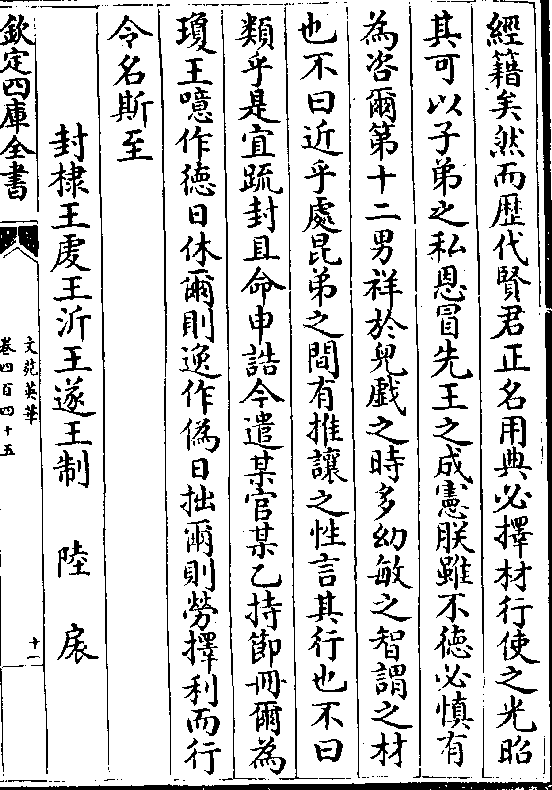 經籍矣然而歴代賢君正名用典必擇材行使之光昭
其可以子弟之私恩冒先王之成憲朕雖不徳必慎有
為咨爾第十二男祥於兒戲之時多幼敏之智謂之材
也不曰近乎處昆弟之間有推讓之性言其行也不曰
類乎是宜疏封且命申誥今遣某官某乙持節冊爾為
瓊王噫作徳日休爾則逸作偽日拙爾則勞擇利而行
令名斯至
封棣王䖍王沂王遂王制 陸扆
欽定四庫全書
文苑英華
卷四百四十五
十一